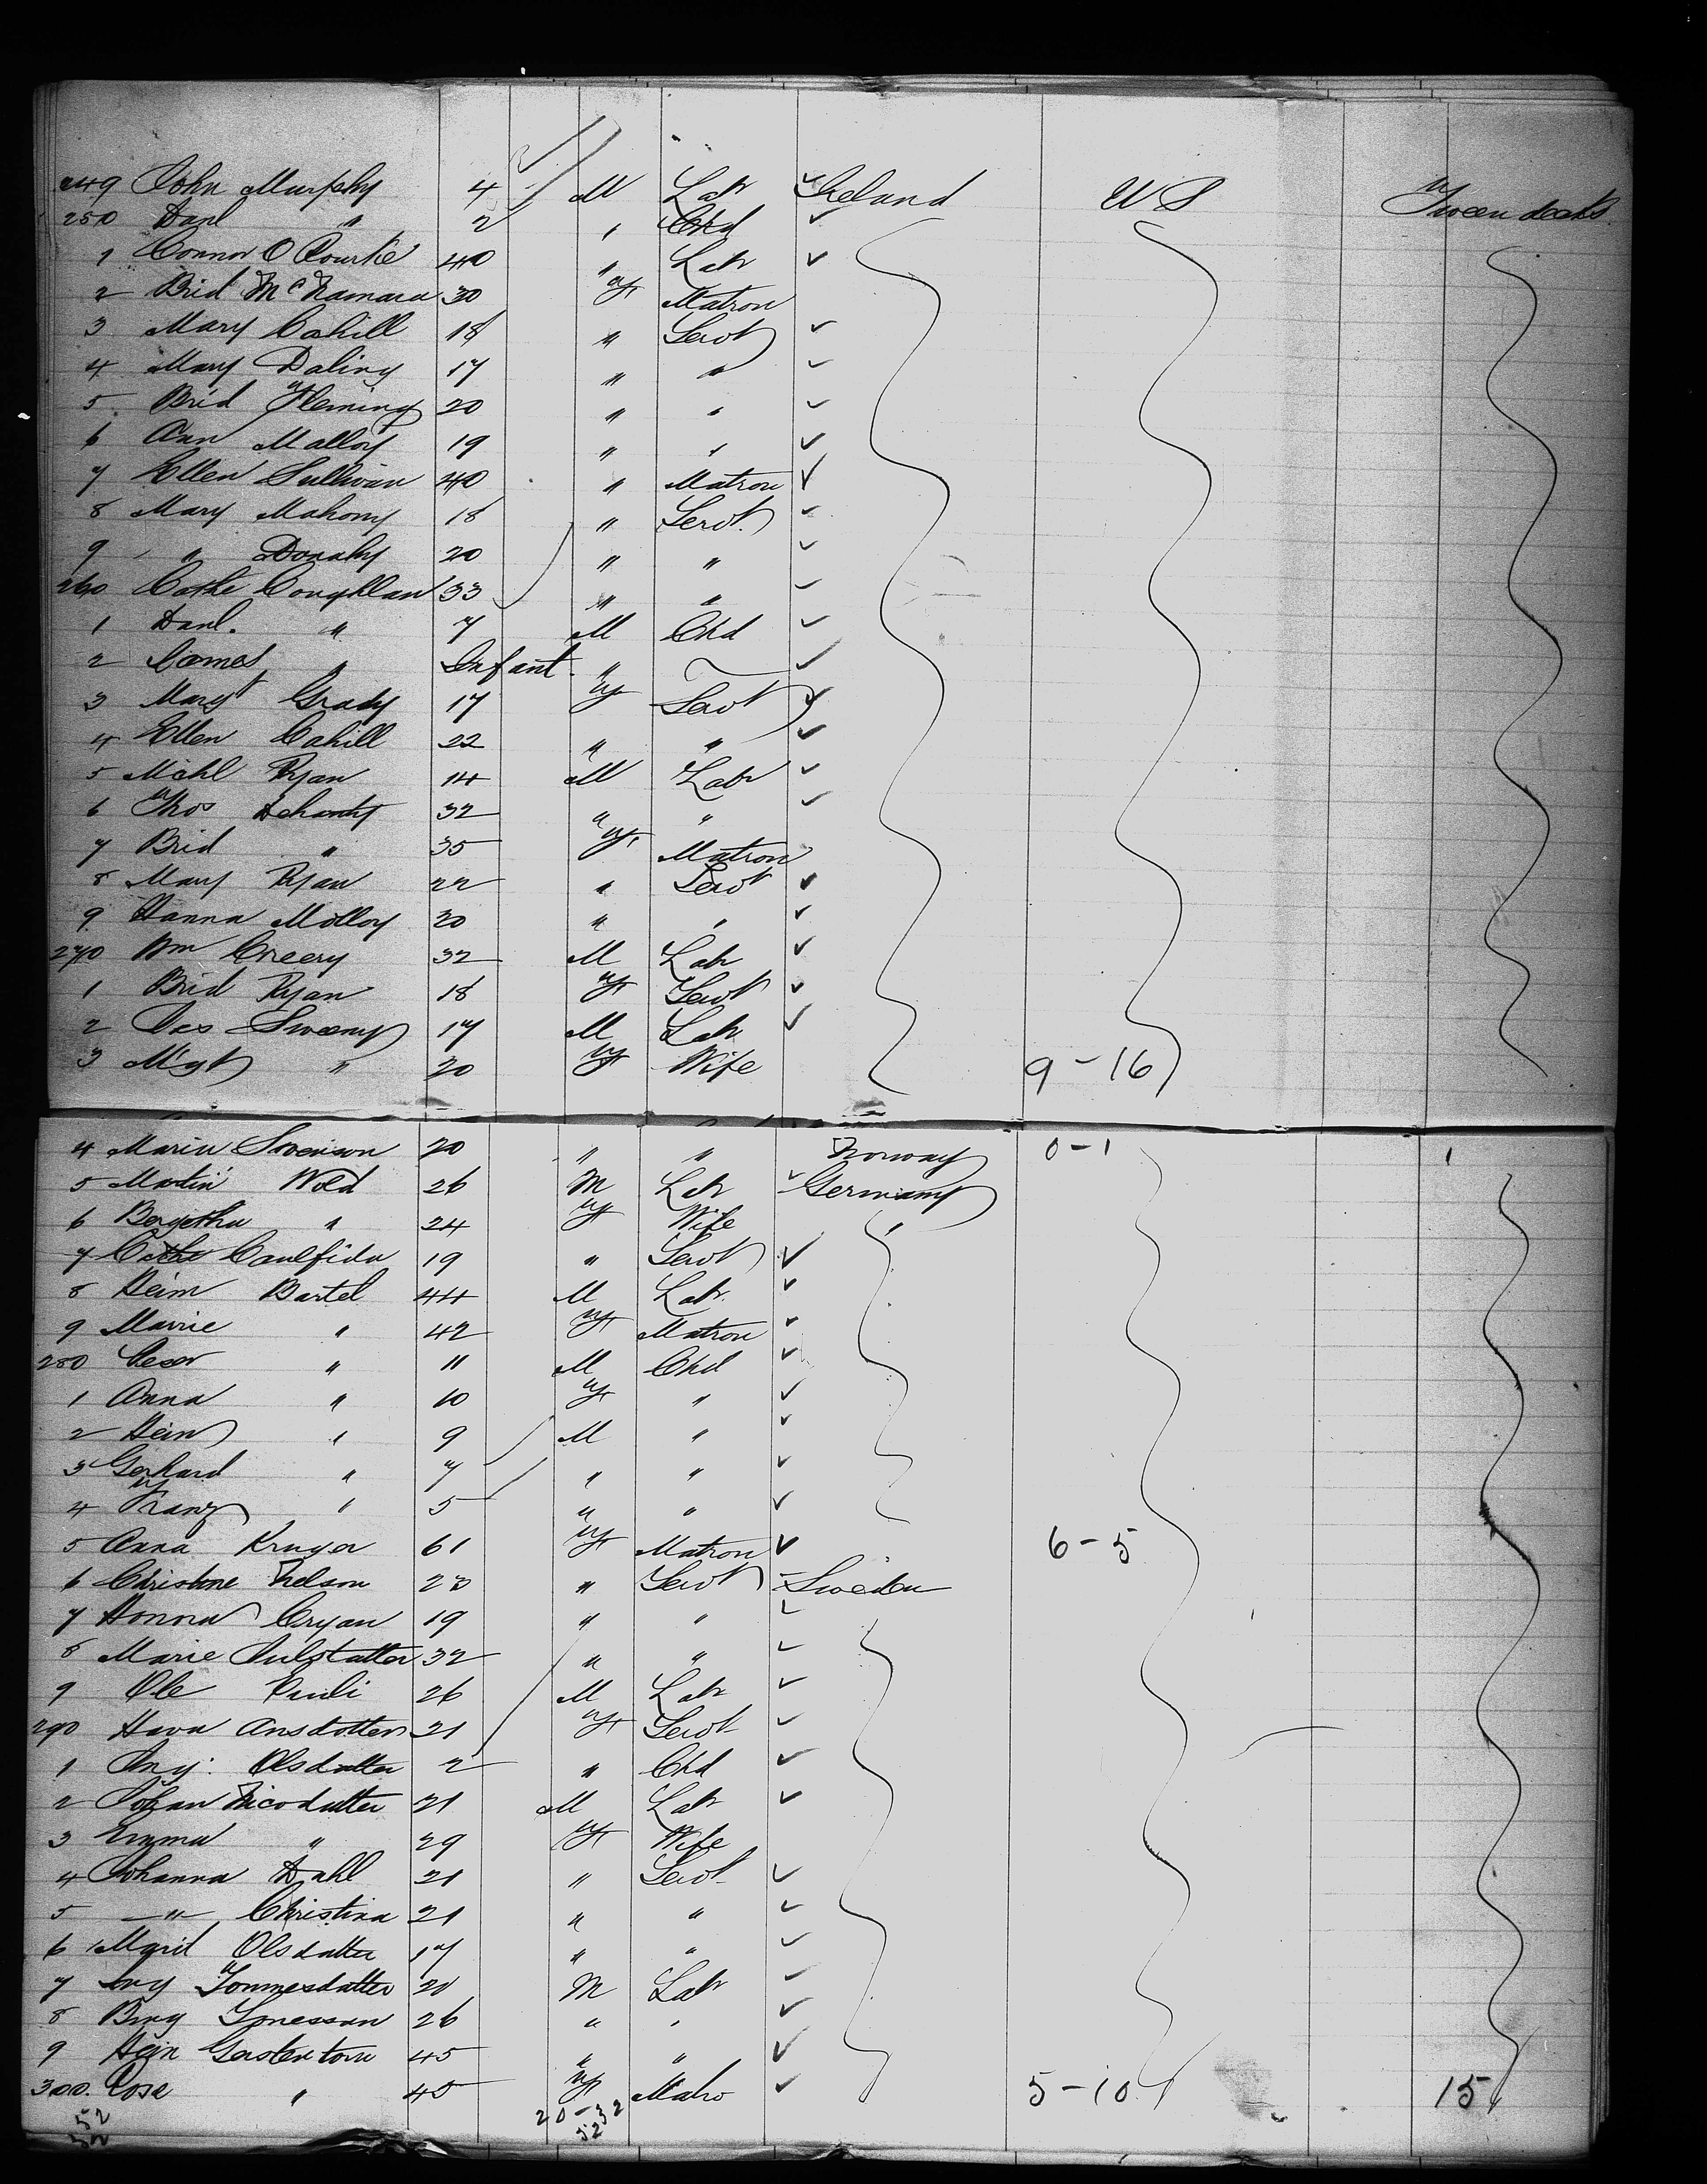 249 John Murphy 4 M Lab Ireland U S Tween decks
250 Danl " 2 " Chd
1 Connor O Rourke 40 " Lab
2 Brid McNamara 30 F Matron
3 Mary Cahill 18 " Servt
4 Mary Daliny 17 " "
5 Brid Fleming 20 " "
6 Ann Malloy 19 " "
7 Ellen Sullivan 40 " Matron
8 Mary Mahony 18 " Servt
9 " Donahy 20 " "
260 Cathe Coughlan 33 " "
1 Danl. " 7 M Chd
2 James " Infant "
3 Margt Grady 17 F Servt
4 Ellen Cahill 22 " "
5 Michl Ryan 14 M Labr
6 Thos Dehanty 32 " "
7 Brid " 35 F Matron
8 Mary Ryan 22 " Servt
9 Hanna Molloy 20 " "
270 Wm Creery 32 M Lab
1 Brid Ryan 18 F Servt
2 Jas Sweeny 17 M Lab
3 Mgt " 20 F Wife 9-16
4 Marin Swenson 20 " " Norway 0-1 1
5 Martin Wold 26 M Lab Germany
6 Bergetha " 24 F Wife "
7 Cathe 19 " Servt
8 Heim Bartel 44 M Lab.
9 Marie " 42 F Matron
280 " 11 M Chd
1 Anna " 10 F "
2 Hein " 9 M "
3 Gerhard " 7 " "
4 Franz " 5 " "
5 Anna Kruger 61 F Matron 6-5
6 Christine Nelson 23 " Servt Sweden
7 Honora Cryan 19 " "
8 Marie 32 " "
9 Ole Pauli 26 M Lab
290 Hava Ansdotter 21 F Servt
1 Ing. Olsdatter 2 " Chd
2 Johan Nicodutter 31 M Lab
3 Emma " 29 F Wife
4 Johanna Dahl 21 " Servt
5 " Christina 21 " "
6 Mgrit Olsdatter 17 " "
7 Ivy Tonnesdatter 20 M Lab
8 Bmy Tonessan 26 " "
9 Hein Gerstentorn 45 " "
300. Rosa " 45 F Matro 5-10 15
52 20-32
52